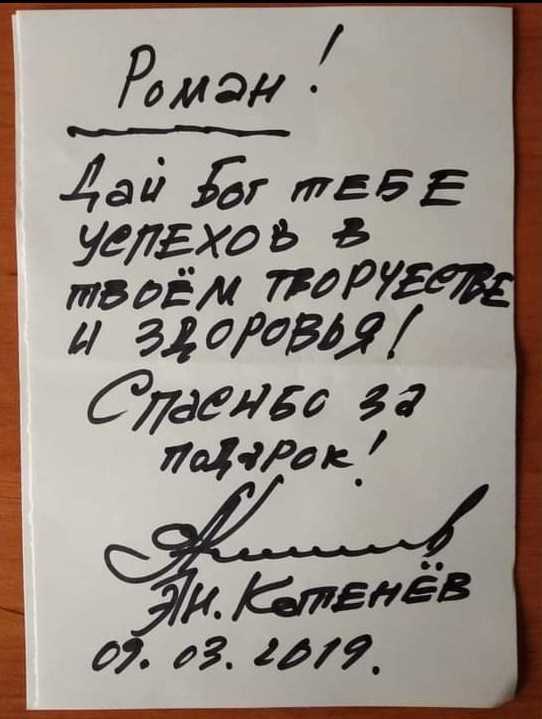 Роман!
Дай Бог тЕБЕ
УСПЕХОВ в
твоём ТВОРЧЕСТВЕ
и ЗДОРОВЬЯ!
Спасибо за
подарок!
Ан. КотЕНЁВ
09.03.2019.